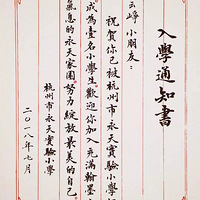 入學通知書
云崢 小朋友：
祝賀你已被杭州市永天實驗小學
成為壹名小學生歡迎你加入充滿翰墨
氣息的永天家園努力綻放最美的自己
杭州市永天實驗小學
二〇一八年七月